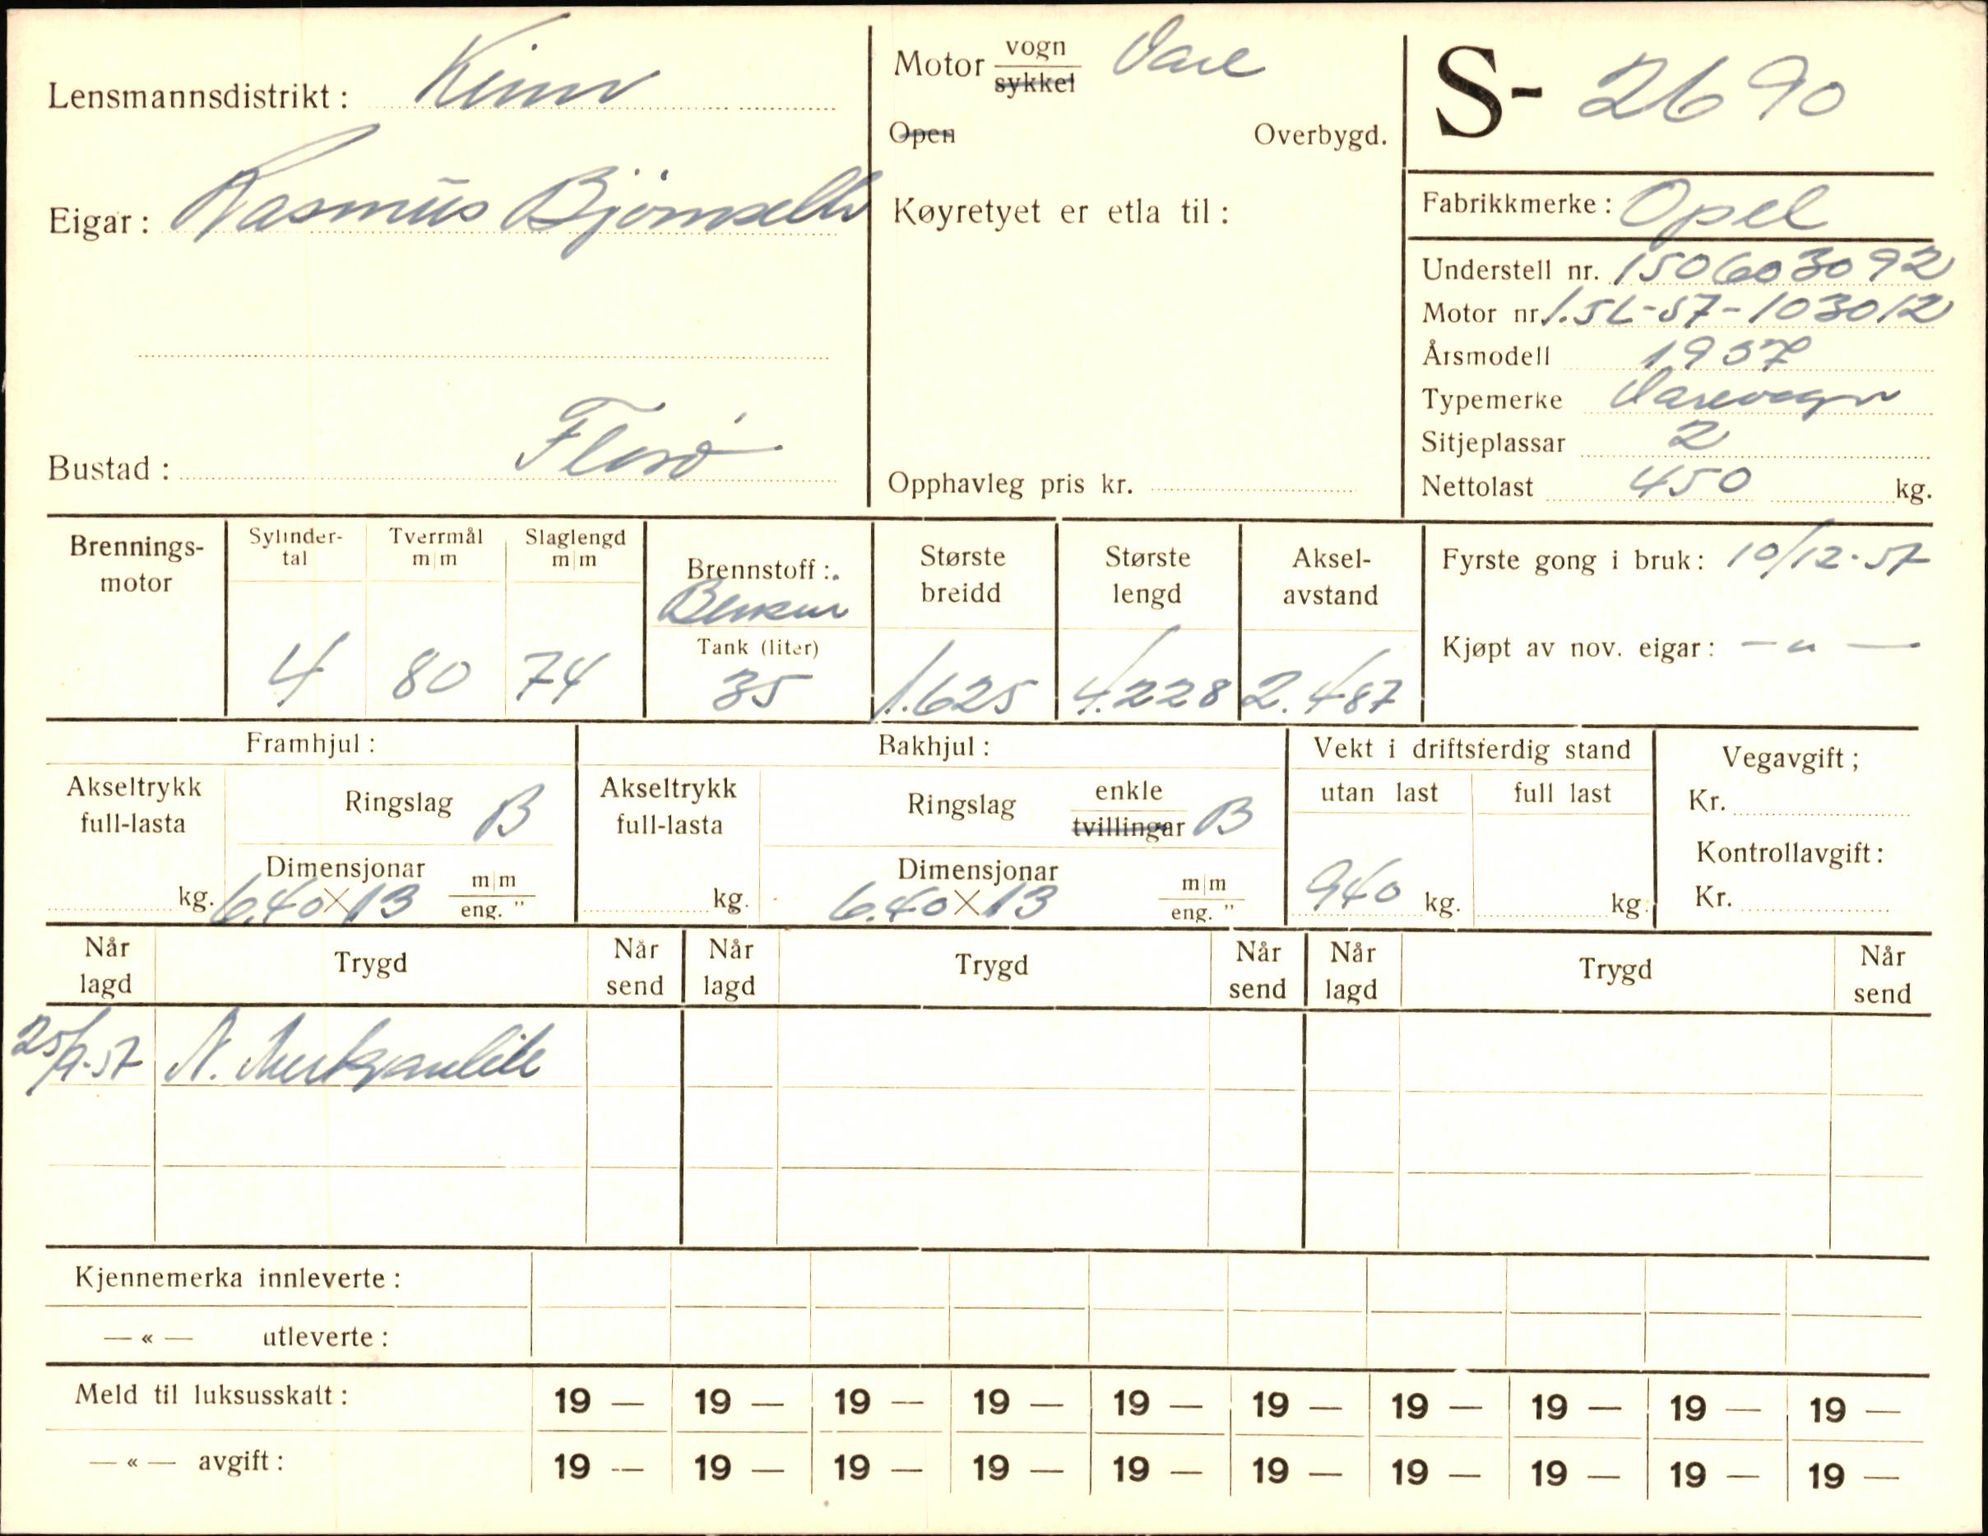 Lensmannsdistrikt: Kinn
Eigar: Rasmus Bjørnseth
Bustad: Florø
Motor vogn Vare
sykkel
Open Overbygd.
Køyretyet er etla til:
Opphavleg pris kr.
S- 2690
Fabrikkmerke: Opel
Understell nr. 150603092
Motor nr. 1.5L-57-103012
Årsmodell 1957
Typemerke Varevogn
Sitjeplassar 2
Nettolast 450 kg.
Brennings-
motor
Sylinder-
tal
4
Tverrmål
m|m
80
Slaglengd
m|m
74
Brennstoff:
Bensin
Tank (liter)
35
Største
breidd
1.625
Største
lengd
4.228
Aksel-
avstand
2.487
Fyrste gong i bruk: 10/12-57
Kjøpt av nov. eigar: — " —
Framhjul:
Akseltrykk
full-lasta
kg.
Ringslag B
Dimensjonar
6.40 X 13 m|m
eng. "
Bakhjul:
Akseltrykk
full-lasta
kg.
Ringslag enkle B
tvillingar
Dimensjonar
6.40 X 13 m|m
eng. "
Vekt i driftsferdig stand
utan last full last
940 kg. kg.
Vegavgift;
Kr.
Kontrollavgift:
Kr.
Når
lagd Trygd Når
send Når
lagd Trygd Når
send Når
lagd Trygd Når
send
25/9-57 N.
Kjennemerka innleverte:
— « — utleverte:
Meld til luksusskatt: 19 — 19 — 19 — 19 — 19 — 19 — 19 — 19 — 19 — 19 —
— « — avgift: 19 — 19 — 19 — 19 — 19 — 19 — 19 — 19 — 19 — 19 —